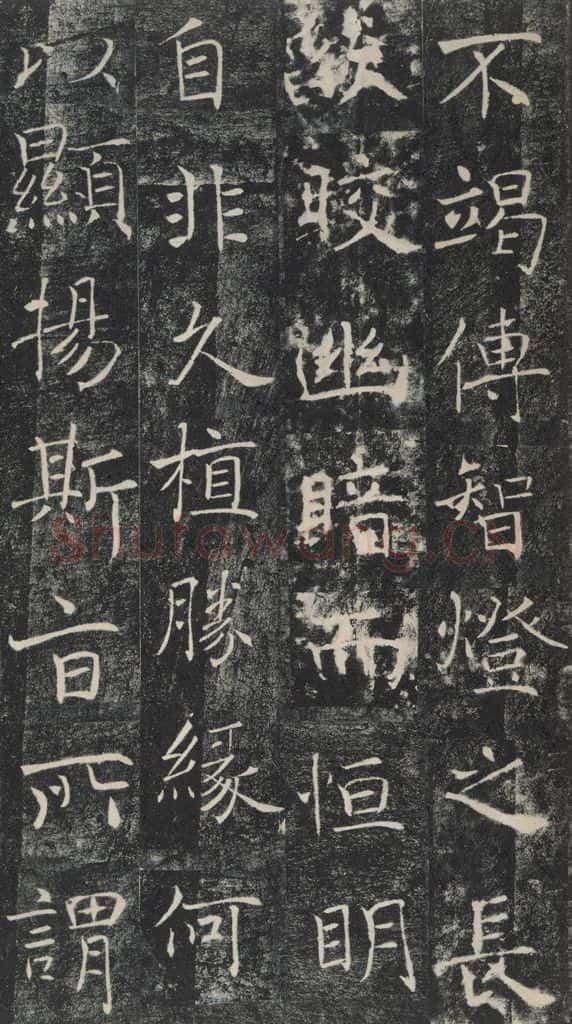 不竭傳智燈之長
燄皎幽暗而恒明
自非久植勝緣何
以顯揚斯旨所謂
Shufawang.CN